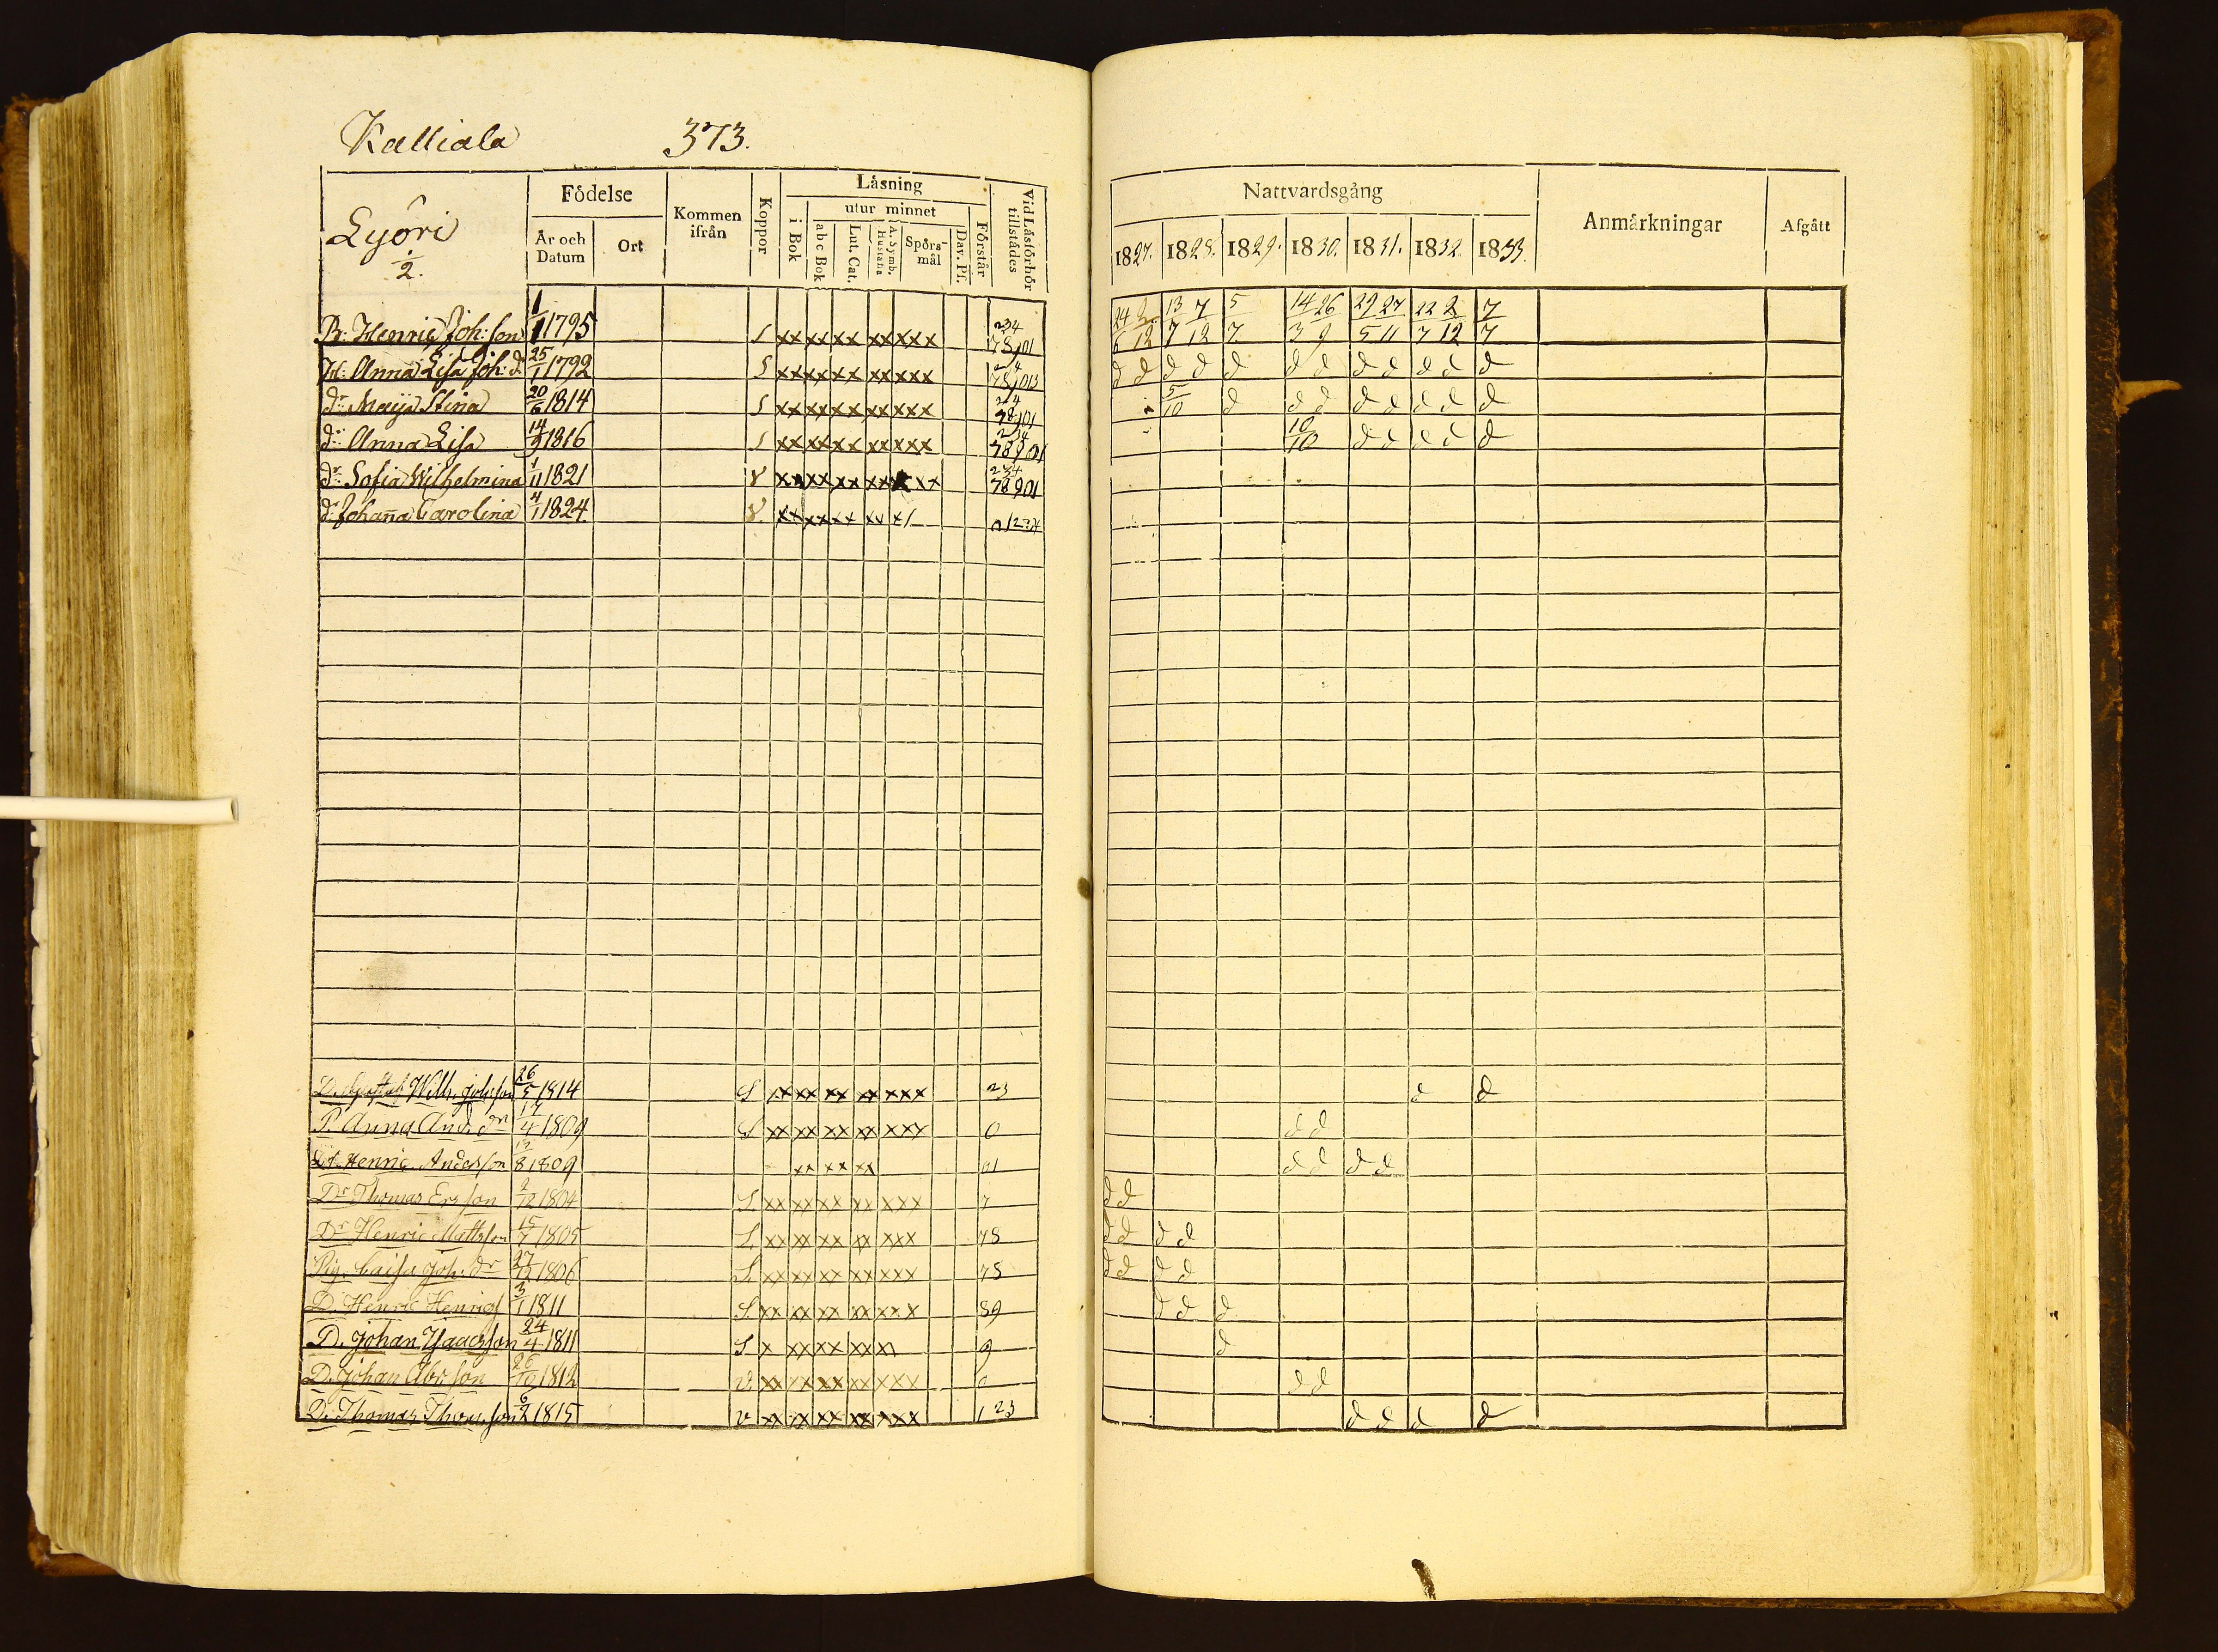 Kalliala 373.
Lyöri
2.
Födelse
År och Datum
Ort
Kommen ifrån
Koppor
Låsning
i Bok
utur minnet
abc Bok
Lut. Cat.
A. Symb. Hustafla
Spörs-mål
Dav. Ps.
Förstår
Vid Läsförhör tillstädes
Nattvardsgång
1827. 1828. 1829. 1830. 1831. 1832. 1833.
Anmärkningar
Afgått
B: Henric Joh: son 1/1 1795 S xx xx xx xx xxx 234 78901 24/6 2/12 13/7 7/12 5/7 14/3 26/9 29/5 27/11 22/7 2/12 7/7
H: Anna Lisa Joh: d. 25/1 1792 S xx xx xx xx xxx d d d d d d d d d d d d
dr. Maija Stina 20/6 1814 S xx xx xx xx xxx 5/10 d d d d d d d d
dr. Anna Lisa 14/9 1816 S xx xx xx xx xxx 234 78901 10/10 d d d d d
dr. Sofia Wilhelmina 1/11 1821 V xx xx xx xx xx 234 78901
dr. Johanna Carolina 4/1 1824. V. xx xx xx xx x/ 01234
D. Gustaf Wilh. Johsson 26/5 1814 S xx xx xx xx xxx 23 d d
P. Anna And. dr 17/4 1809 S xx xx xx xx xxx 0 d d
Henric Andersson 8 1809 xx xx xx 01 d d d d
Dr Thomas Ersson 2/12 1804 S. xx xx xx xx xxx 7 d d
Dr Henric Mattsson 15/7 1805 S. xx xx xx xx xxx 78 d d d d
Pig. Caisa Joh. dr 27/12 1806 S. xx xx xx xx xxx 78 d d d d
D. Henric Henrics 3/1 1811 S. xx xx xx xx xxx 89 d d d
D. Johan Isaacsson 24/4 1811 S x xx xx xx 9 d
D. Johan Abr. son 26/10 1812 v. xx xx xx xx xxx 0 d d
D. Thomas Thomsson 6/2 1815 v xx xx xx xx xxx 123 d d d d